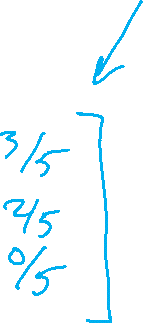 3/5
2/5
0/5